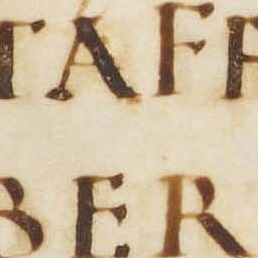 TAFF
BER